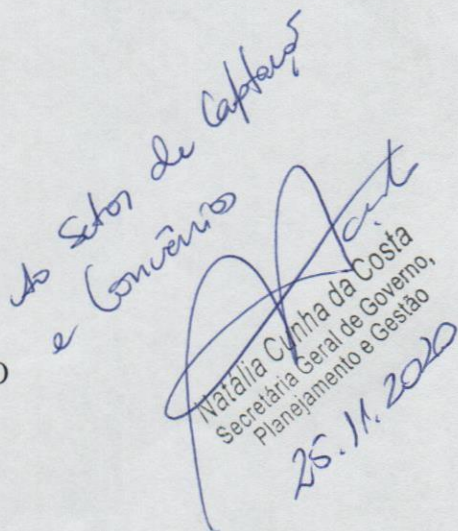 Ao Setor de Captação
e Convênios
O
Natália Cunha da Costa
Secretária Geral de Governo,
Planejamento e Gestão
25.11.2020